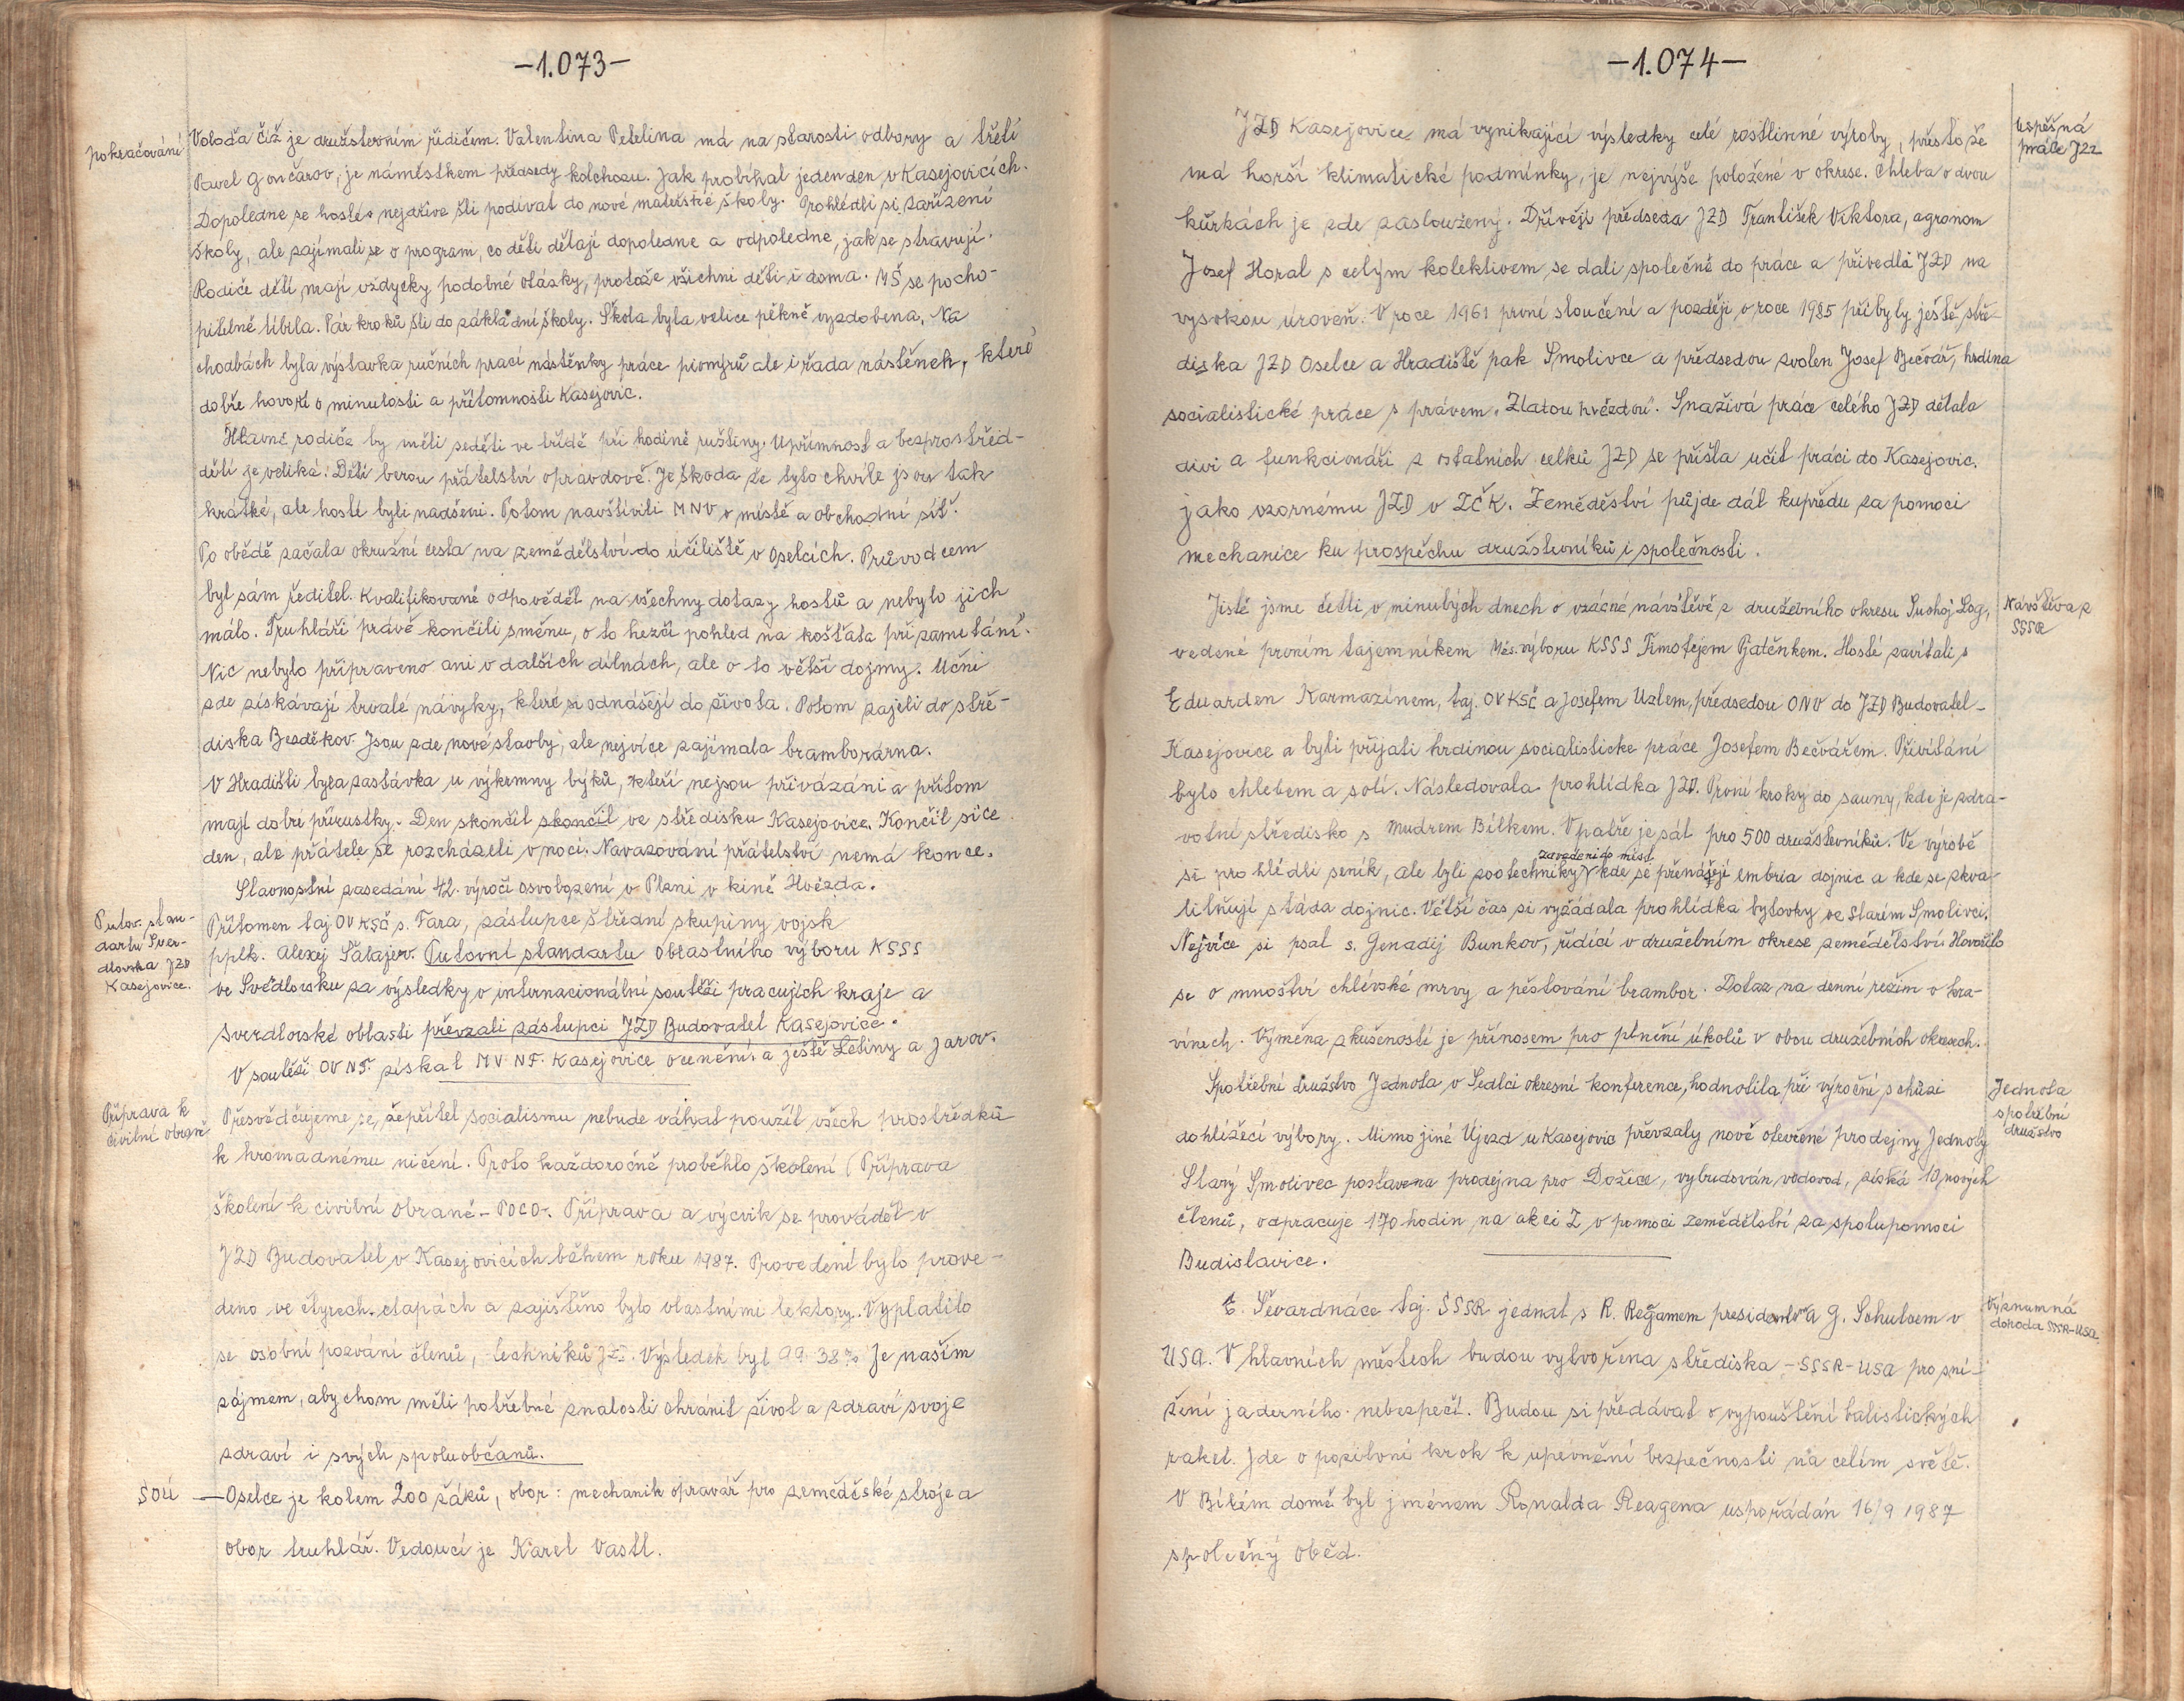 -1.073-
pokračování
Voloďa Číž je družstevním řidičem. Valentina Petelina má na starosti odbory a třetí
Pavel Gončarov, je náměstkem předsedy kolchozu. Jak probíhal jeden den v Kasejovicích.
Dopoledne se hosté nejdříve šli podívat do nové mateřské školy. Prohlédli si zařízení
školy, ale zajímali se o program, co děti dělají dopoledne a odpoledne, jak se stravují.
Rodiče dětí mají vždycky podobné otázky, protože všichni děti i doma. MŠ se pocho-
pitelně líbila. Pár kroků šli do základní školy. Škola byla velice pěkně vyzdobena. Na
chodbách byla výstavka ručních prací nástěnky práce pionýrů ale i řada nástěnek, které
dobře hovoří o minulosti a přítomnosti Kasejovic.
Hlavně rodiče by měli seděti ve třídě při hodině ruštiny. Upřímnost a bezprostřed-
dětí je veliká. Děti berou přátelství opravdově. Je škoda že tyto chvíle jsou tak
krátké, ale hosti byli nadšeni. Potom navštívili MNV v místě a obchodní síť.
Po obědě začala okružní cesta na zemědělství do účiliště v Oselcích. Průvodcem
byl sám ředitel. Kvalifikovaně odpověděl na všechny dotazy hostů a nebylo jich
málo. Truhláři právě končili směnu, o to hezčí pohled na košťata při zametání".
Nic nebylo připraveno ani v dalších dílnách, ale o to větší dojmy. Učni
zde získávají trvalé návyky, které si odnášejí do života. Potom zajeli do stře-
diska Bezděkov. Jsou zde nové stavby, ale nejvíce zajímala bramborárna.
V Hradišti byla zastávka u výkrmny býků, kteří nejsou přivázáni a přitom
mají dobré přírustky. Den skončil skončil ve středisku Kasejovice. Končil sice
den, ale přátele se rozcházeli v noci. Navazování přátelství nemá konce.
Slavnostní zasedání 42. výročí osvobození v Plzni v kině Hvězda.
Putov. stan-
dartu Sver-
dlovska JZD
Kasejovice.
Přítomen taj. OV KSČ s. Fára, zástupce Střední skupiny vojsk
pplk. Alexej Šatajev. Putovní standartu Oblastního výboru KSSS
ve Svědlovsku za výsledky v internacionální soutěži pracujích kraje a
Sverdlovské oblasti převzali zástupci JZD Budovatel Kasejovice.
V soutěži OV NF. získal MV NF. Kasejovice ocenění a ještě Letiny a Jarov.
Příprava k
civilní obraně
Přesvědčujeme se, žepřítel socialismu nebude váhat použít všech prostředků
k hromadnému ničení. Proto každoročně proběhlo školení (Příprava
školení k civilní obraně - POCO-. Příprava a výcvik se prováděl v
JZD Budovatel v Kasejovicích během roku 1987. Provedení bylo prove-
deno ve čtyrech etapách a zajištěno bylo vlastními lektory. Vyplatilo
se osobní pozvání členů, techniků JZD. Výsledek byl 99 38% Je naším
zájmem, abychom měli potřebné znalosti ohránit život a zdraví svoje
zdraví i svých spoluobčanů.
SOU
— Oselce je kolem 200 žáků, obor: mechanik opravář pro zeměděské stroje a
obor truhlář. Vedoucí je Karel Vastl.
-1.074-
JZD Kasejovice má vynikající výsledky celé rostlinné výroby, přesto že
úspěšná
práce JZD
má horší klimatické podmínky, je nejvýše položené v okrese. Chleba o dvou
kůrkách je zde zasloužený. Dřívějí předseda JZD František Viktora, agronom
Josef Horal s celým kolektivem se dali společně do práce a přivedli JZD na
vysokou úroveň. V roce 1961 první sloučení a později v roce 1985 přibyly ještě stře-
diska JZD Oselce a Hradiště pak Smolivce a předsedou zvolen Josef Bečvář, hrdina
socialistické práce s právem „Zlatou hvězdou". Snaživá práce celého JZD dělala
divi a funkcionáři z ostatních celků JZD se přišla učit práci do Kasejovic.
jako vzornému JZD v ZČK. Zeměděství půjde dál kupředu za pomoci
mechanice ku prospěchu družstevníků i společnosti.
Jistě jsme četli v minulých dnech o vzácné návštěvě z družebního okresu Suchoj Log,
Návštěva z
SSSR
vedené prvním tajemníkem Měs. výboru KSSS Timotějem Gatěnkem. Hosté zavítali s
Eduarden Karmazínem, taj. OV KSČ a Josefem Uzlem, předsedou ONV do JZD Budovatel-
Kasejovice a byli přijati hrdinou socialisticke práce Josefem Bečvářem. Přivítání
bylo chlebem a solí. Následovala prohlídka JZD. První kroky do sauny, kde je zdra-
votní středisko s Mudrem Bílkem. V patře je sál pro 500 družstevníků. Ve výrobě
zavedeni do míst
si prohlédli seník, ale byli zootechniky kde se přenášejí embria dojnic a kde se zkva-
litňují stáda dojnic. Větší čas si vyžádala prohlídka bytovky ve Starím Smolivci.
Nejvíce si psal s. Genadij Bunkov, řídící v družebním okrese zemědělství. Hovořilo
se o množtví chlévské mrvy a pěstování brambor. Dotaz na denní režim v kra-
vínech. Výměna zkušeností je přínosem pro plnění úkolů v obou družebních okresech.
Spotřební družstvo Jednota v Sedlci okresní konference, hodnotila při výroční schůzi
Jednota
spotřební
družstvo
dohlížecí výbory. Mimo jiné Újezd u Kasejovic převzaly nově otevřené prodejny Jednoty
Starý Smolivec postavena prodejna pro Dožice, vybudován vodovod, získá 10 nových
členů, odpracuje 170 hodin na akci Z v pomoci zemědělství za spolupomoci
Budislavice.
E. Ševardnáce taj. SSSR jednal s R. Regamem presidentem a G. Schulcem v
Významná
dohoda SSSR-USA
USA. V hlavních městech budou vytvořena střediska - SSSR-USA pro sní-
žení jaderného nebezpečí. Budou si předávat o vypouštění balistických
raket. Jde o pozitivní krok k upevnění bezpečnosti na celím světě.
V Bílém domě byl jménem Ronalda Reagena uspořádán 16/9 1987
společný oběd.